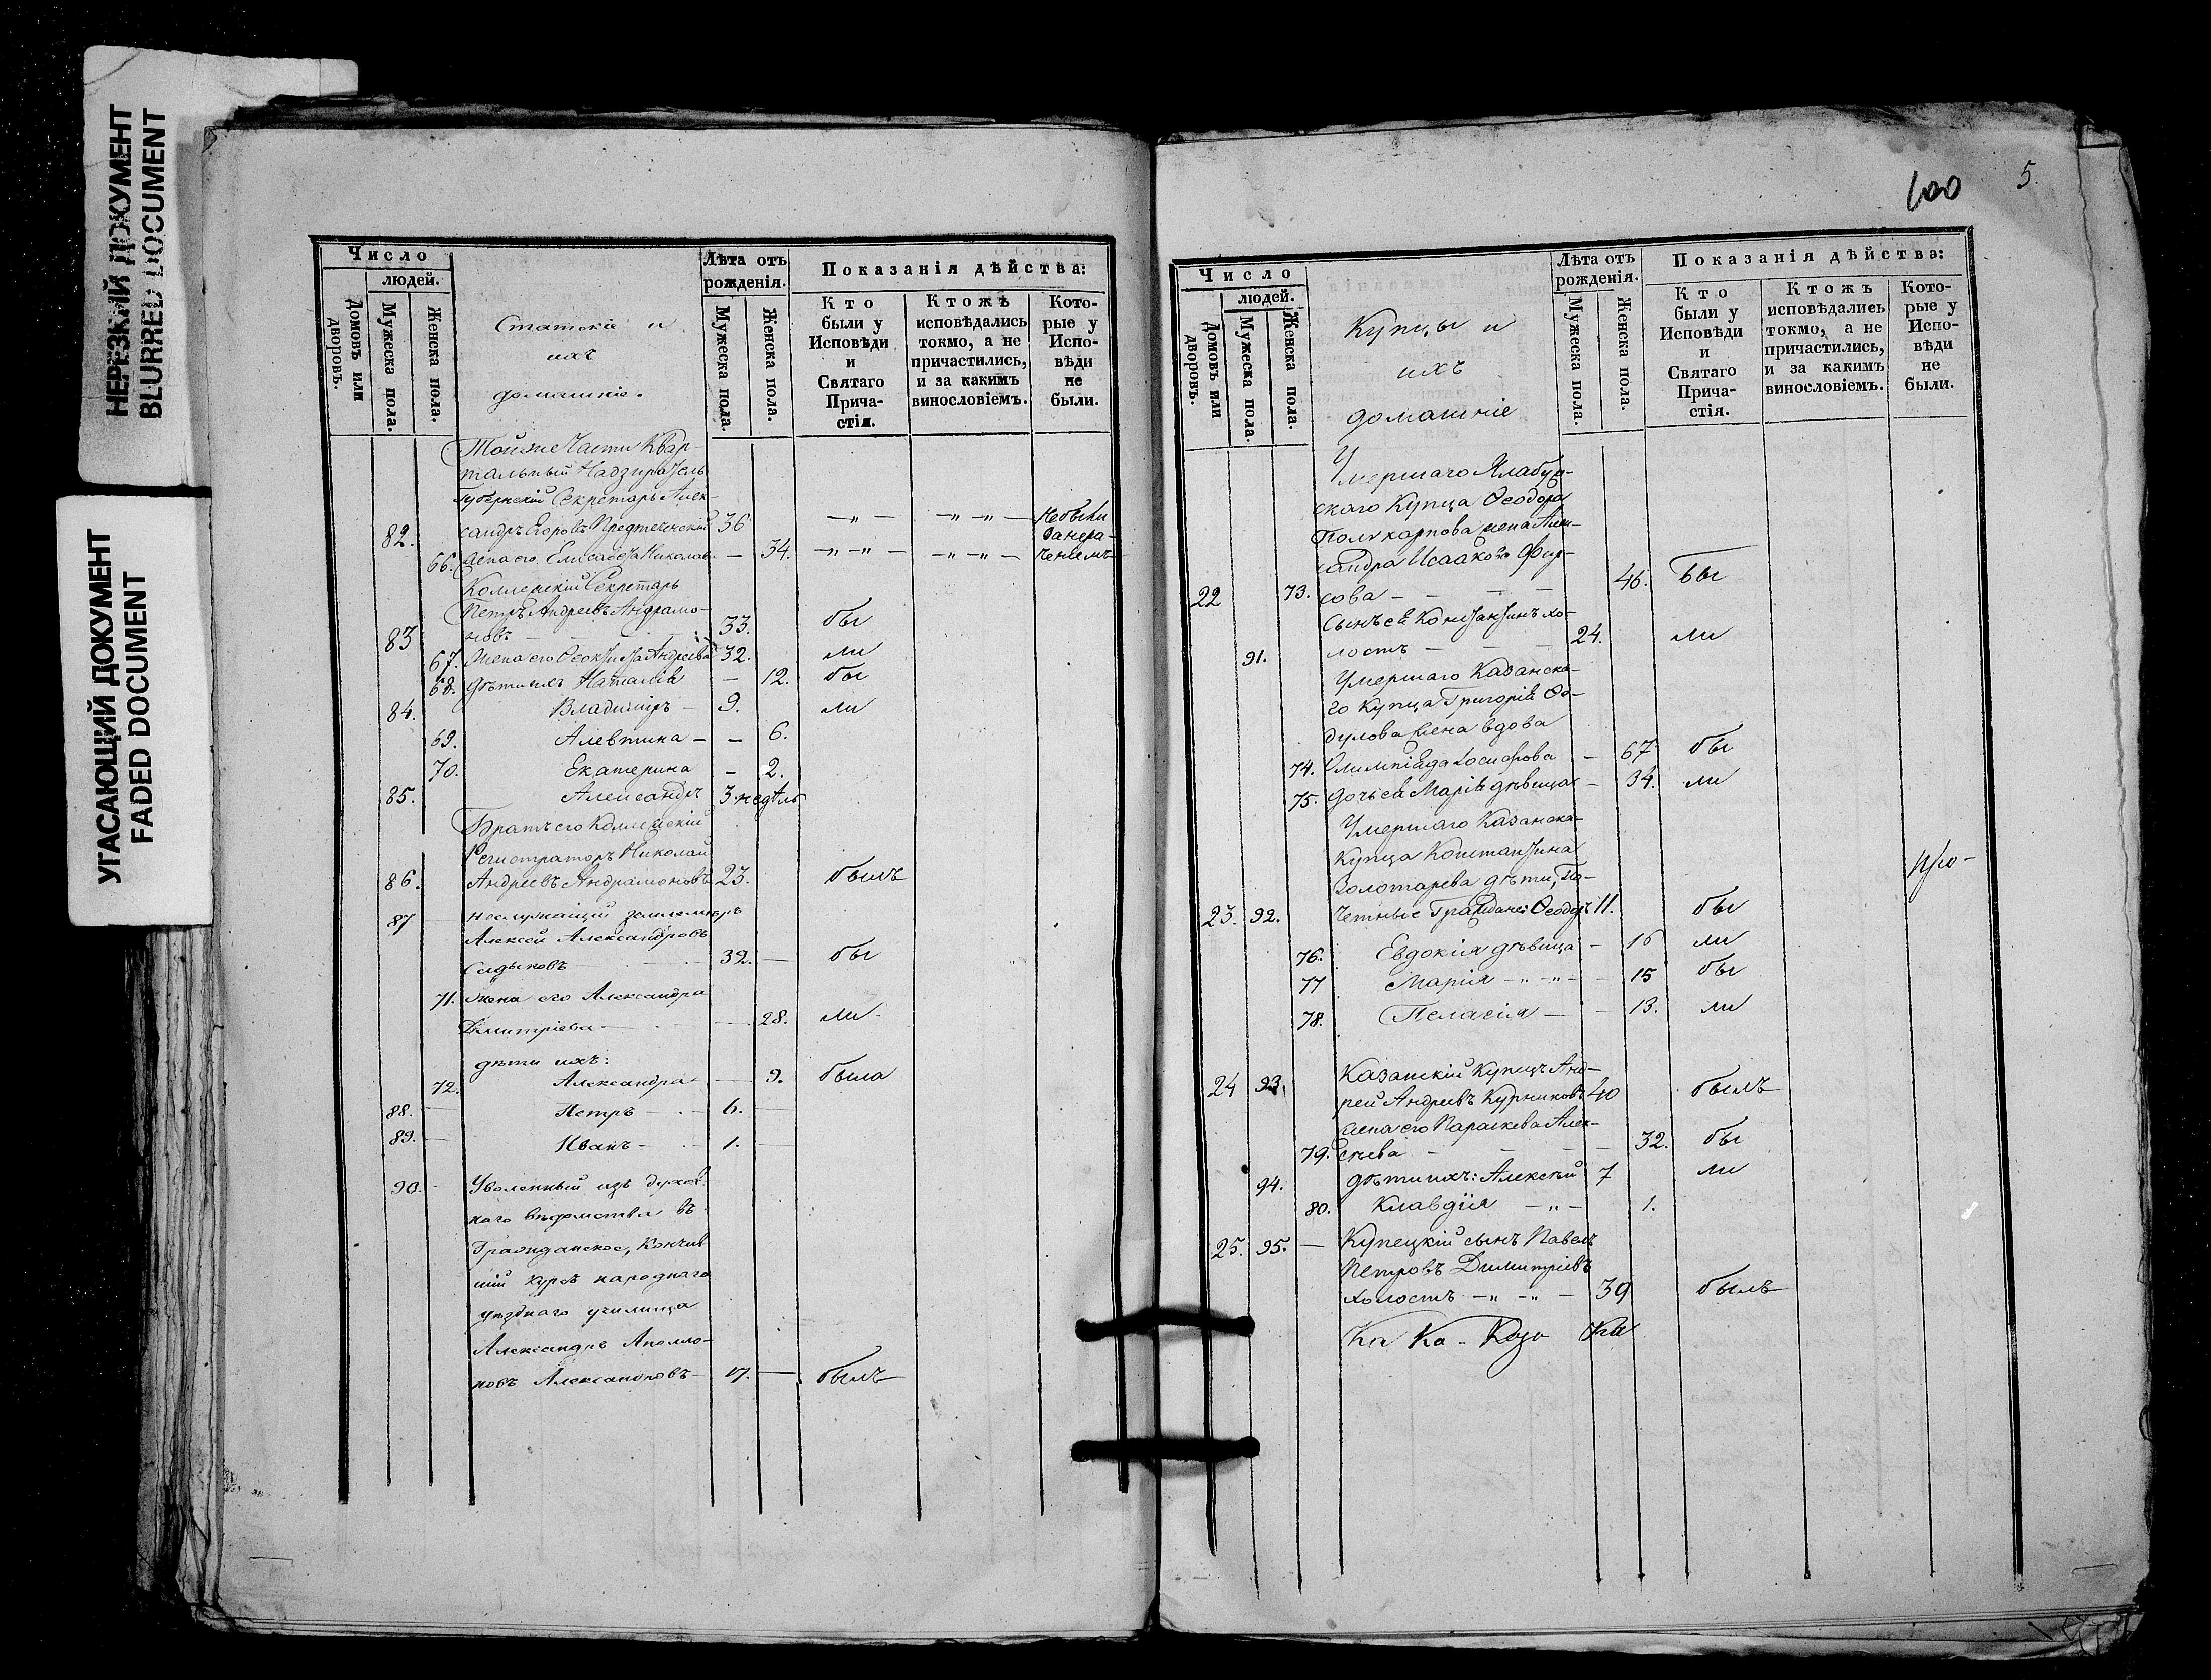 НЕРЕЗКИЙ ДОКУМЕНТ
BLURRED DOCUMENT
УГАСАЮЩИЙ ДОКУМЕНТ
FADED DOCUMENT
Число
людей.
Домовъ или дворовъ.
Мужеска пола.
Женска пола.
Статскіе и
ихъ
домашніе.
Лѣта отъ рожденія.
Мужеска пола.
Женска пола.
Показанія дѣйства:
Кто были у Исповѣди и Святаго Причастія.
Ктожъ исповѣдались токмо, а не причастились, и за какимъ винословіемъ.
Которые у Исповѣди не были.
Тойже Части Квар-
тальный Надзиратель
Губернскій Секретарь Алек-
82. сандръ Егоровъ Предтеченскій 36 —"— —"—"— Небыли
занера-
66. Жена его Елисавета Николаев. — 34. —"—"— —"—"— ченіемъ
Коллежскій Секретарь
Петръ Андреевъ Андрамо-
83 новъ — 33. бы
67. Жена его Феоктиста Андреева 32. ли
68. Дѣти ихъ Наталія — 12. бы
84. Владиміръ — 9. ли
69. Алевтина — — 6.
70. Екатерина — 2.
85. Александръ 3 недѣль
Братъ его Коллежскій
Регистраторъ Николай
86. Андреевъ Андрамоновъ 23. былъ
87 неслужащій землемѣръ
Алексей Александровъ
32. — бы
71. Жена его Александра
Димитріева — — 28. ли
дѣти ихъ:
72. Александра — 9. была
88. — Петръ — 6. —
89. — Иванъ — 1. —
90. Уволенный изъ духов-
наго вѣдомства въ
Гражданское, Кончив
шій курсъ народнаго
уѣзднаго училища
Александръ Аполло-
новъ Александровъ 17. — былъ
100 5.
Число
людей.
Домовъ или дворовъ.
Мужеска пола.
Женска пола.
Купцы и
ихъ
домашніе
Лѣта отъ рожденія.
Мужеска пола.
Женска пола.
Показанія дѣйства:
Кто были у Исповѣди и Святаго Причастія.
Ктожъ исповѣдались токмо, а не причастились, и за какимъ винословіемъ.
Которые у Исповѣди не были.
Умершаго Елабуж-
скаго Купца Феодора
Поликарпова жена Алек-
сандра Исаакова Фир-
22 73. сова — — — 46. Бы
Сынъ ея Константинъ хо-
91. лостъ — — — 24. ли
Умершаго Казанска-
го Купца Григорія
жена вдова
74. Олимпіада Іосифова — 67 бы
75. Дочь ея Марія дѣвица — 34. ли
Умершаго Казанска-
Купца Константина
Золотарева дѣти, По-
23. 92. четные Граждане: Феодоръ 11. бы
76. Евдокія дѣвица — 16 ли
77 Марія —"—"— 15 бы
78. Пелагія — — 13. ли
24 93. Казанскій Купецъ Анд-
рей Андреевъ Курниковъ 40 былъ
Жена его Параскева Алек-
79. сѣева — — — 32. бы
94. Дѣти ихъ: Алексѣй 7 ли
80. Клавдія —"— 1.
25. 95. — Купецкій сынъ Павелъ
Петровъ Димитріевъ
холостъ —"—"— 39 былъ